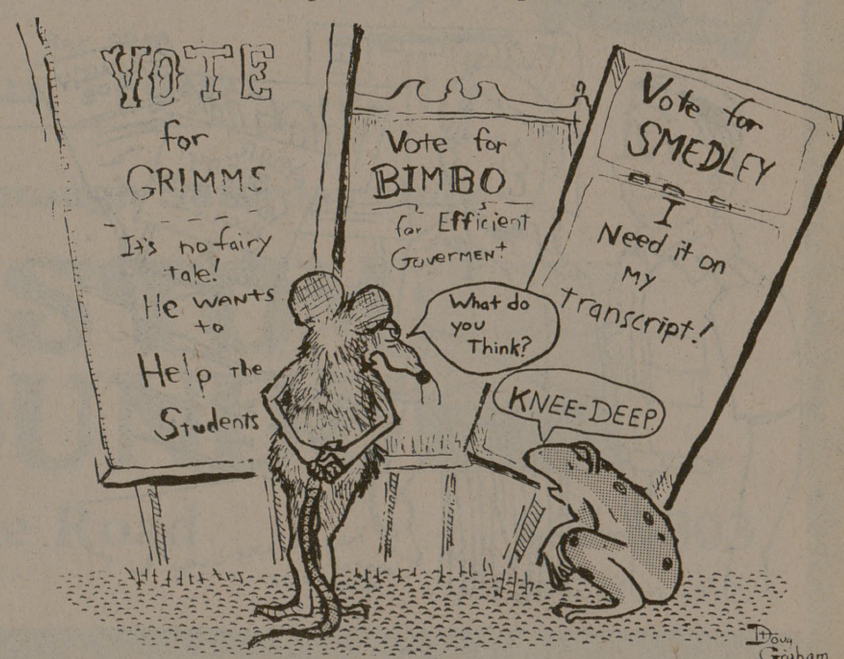 VOTE
for
GRIMMS
It's no fairy
tale!
He WANTS
to
Help the
Students
Vote for
BIMBO
for Efficient
Goverment
Vote for
SMEDLEY
I
Need it on
my
transcript!
What do
you
Think?
KNEE-DEEP.
Doug
Graham